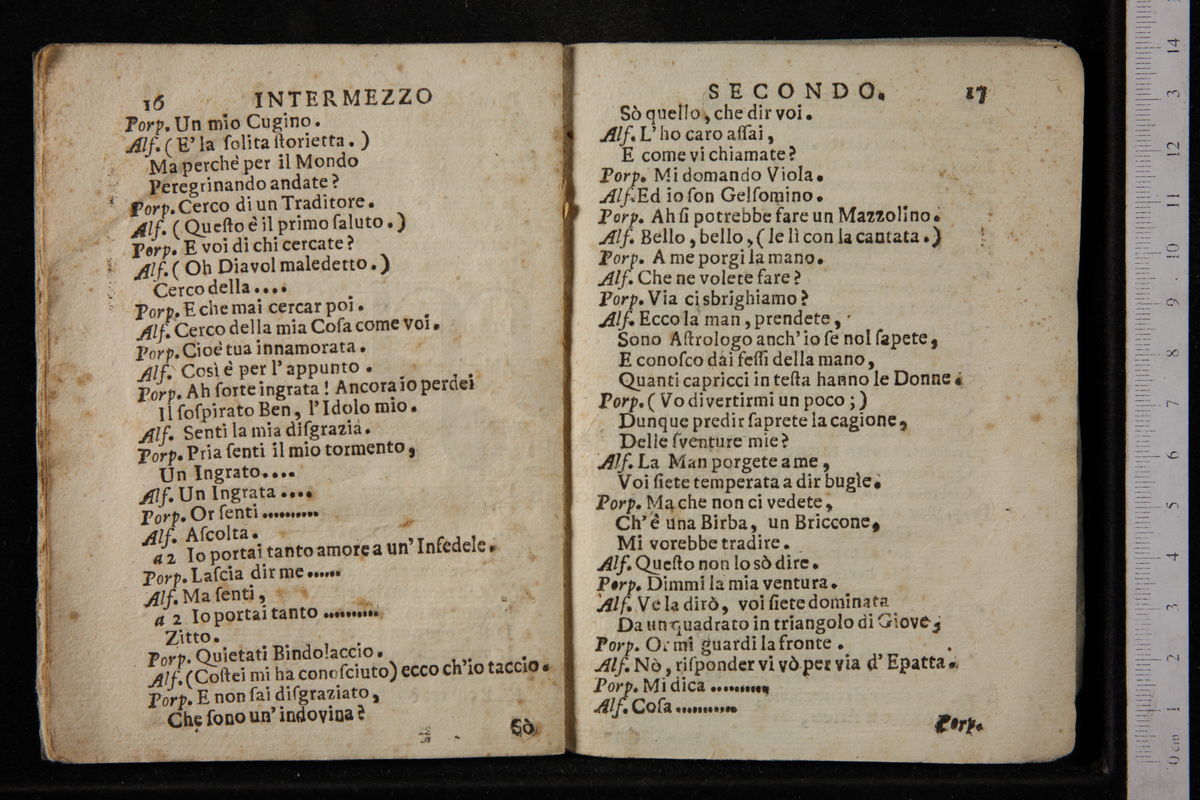 16 INTERMEZZO
Porp. Un mio Cugino.
Alf. (E' la ſolita ſtorietta.)
Ma perchè per il Mondo
Peregrinando andate?
Porp. Cerco di un Traditore.
Alf. (Queſto è il primo ſaluto.)
Porp. E voi di chi cercate?
Alf. (Oh Diavol maledetto.)
Cerco della....
Porp. E che mai cercar poi.
Alf. Cerco della mia Coſa come voi.
Porp. Cioè tua innamorata.
Alf. Così è per l'appunto.
Porp. Ah ſorte ingrata! Ancora io perdei
Il ſoſpirato Ben, l'Idolo mio.
Alf. Senti la mia diſgrazia.
Porp. Pria ſenti il mio tormento,
Un Ingrato....
Alf. Un Ingrata....
Porp. Or ſenti..........
Alf. Aſcolta.
a 2 Io portai tanto amore a un' Infedele.
Porp. Laſcia dir me......
Alf. Ma ſenti,
a 2 Io portai tanto..........
Zitto.
Porp. Quietati Bindolaccio.
Alf. (Coſtei mi ha conoſciuto) ecco ch'io taccio.
Porp. E non ſai diſgraziato,
Che ſono un' indovina?
Sò
SECONDO. 17
Sò quello, che dir voi.
Alf. L'ho caro aſſai,
E come vi chiamate?
Porp. Mi domando Viola.
Alf. Ed io ſon Gelſomino.
Porp. Ah ſi potrebbe fare un Mazzolino.
Alf. Bello, bello, (le lì con la cantata.)
Porp. A me porgi la mano.
Alf. Che ne volete fare?
Porp. Via ci sbrighiamo?
Alf. Ecco la man, prendete,
Sono Aſtrologo anch'io ſe nol ſapete,
E conoſco dai feſſi della mano,
Quanti capricci in teſta hanno le Donne.
Porp. (Vo divertirmi un poco;)
Dunque predir ſaprete la cagione,
Delle ſventure mie?
Alf. La Man porgete a me,
Voi ſiete temperata a dir bugìe.
Porp. Ma che non ci vedete,
Ch'è una Birba, un Briccone,
Mi vorebbe tradire.
Alf. Queſto non lo sò dire.
Porp. Dimmi la mia ventura.
Alf. Ve la dirò, voi ſiete dominata
Da un quadrato in triangolo di Giove;
Porp. Or mi guardi la fronte.
Alf. Nò, riſponder vi vò per via d'Epatta.
Porp. Mi dica..........
Alf. Coſa..........
Porp.